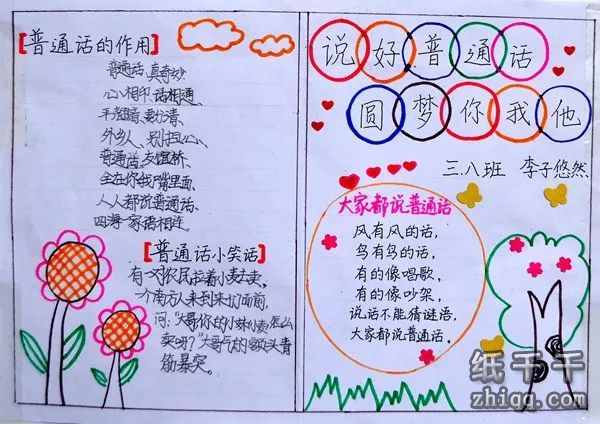 [普通话的作用]
普通话、真奇妙
心心相印、话相通、
平翘音、要分清、
外乡人、别担心、
普通话、友谊桥、
全在你我嘴里面、
人人都说普通话、
四海一家语相连。
[普通话小笑话]
有一对农民拉着小麦去卖,
一个南方人来到来的面前,
问:"大哥你的小妹(小麦)怎么
卖呀?"大哥气的额头青
筋暴突。
说好普通话
圆梦你我他
三.八班 李子悠然
大家都说普通话
风有风的话,
鸟有鸟的话,
有的像唱歌,
有的像吵架,
说话不能猜谜语,
大家都说普通话。
纸千千
zhiqq.com